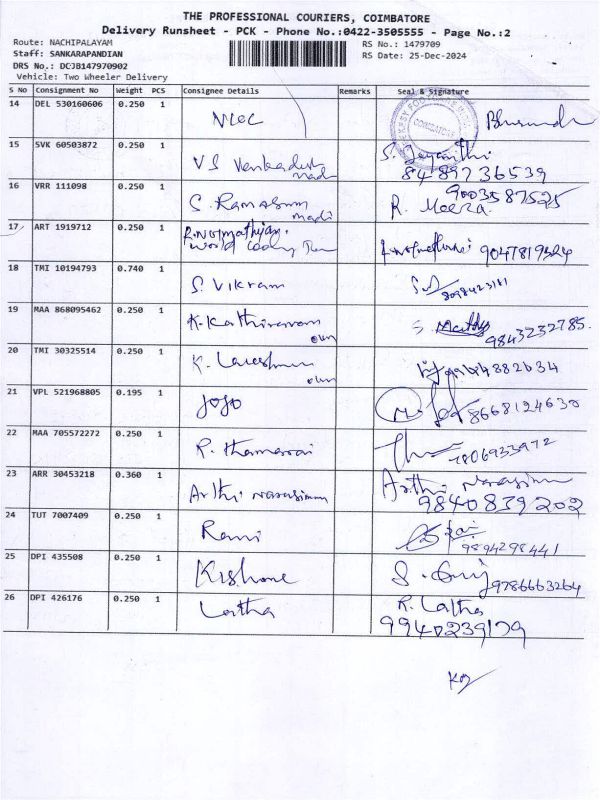 THE PROFESSIONAL COURIERS, COIMBATORE
Delivery Runsheet - PCK - Phone No.:0422-3505555 - Page No.:2
Route: NACHIPALAYAM
RS No.: 1479709
Staff: SANKARAPANDIAN
RS Date: 25-Dec-2024
DRS No.: DCJB147970902
Vehicle: Two Wheeler Delivery
S No Consignment No Weight PCS Consignee Details Remarks Seal & Signature
14 DEL 530160606 0.250 1
COIMBATORE
15 SVK 60503872 0.250 1 VS Venkadesh S. Jayanthi
8489736539
16 VRR 111098 0.250 1 S. Ramasamy R. Meera 9003587525
17 ART 1919712 0.250 1 9047819324
18 TMI 10194793 0.740 1 S. Vikram 8098423181
19 MAA 868095462 0.250 1 K. Kathiravan own 9843232785
20 TMI 30325514 0.250 1 own
21 VPL 521968805 0.195 1 JOJO 8668124630
22 MAA 705572272 0.250 1 R. Thamarai 7806933972
23 ARR 30453218 0.360 1 Arthi Narasimm Arthi Narasimm
9840839202
24 TUT 7007409 0.250 1 Ravi 9894298441
25 DPI 435508 0.250 1 Kishore 9786663264
26 DPI 426176 0.250 1 Latha R. Latha
9940239179